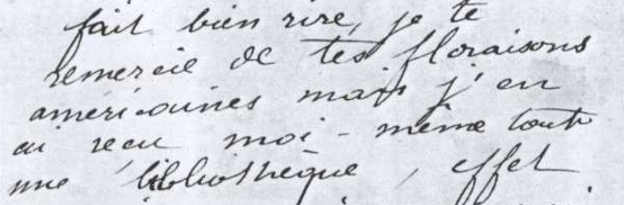 fait bien rire, je te
remercie de tes floraisons
américaines mais j'en
ai reçu moi-même toute
une bibliothèque, effet